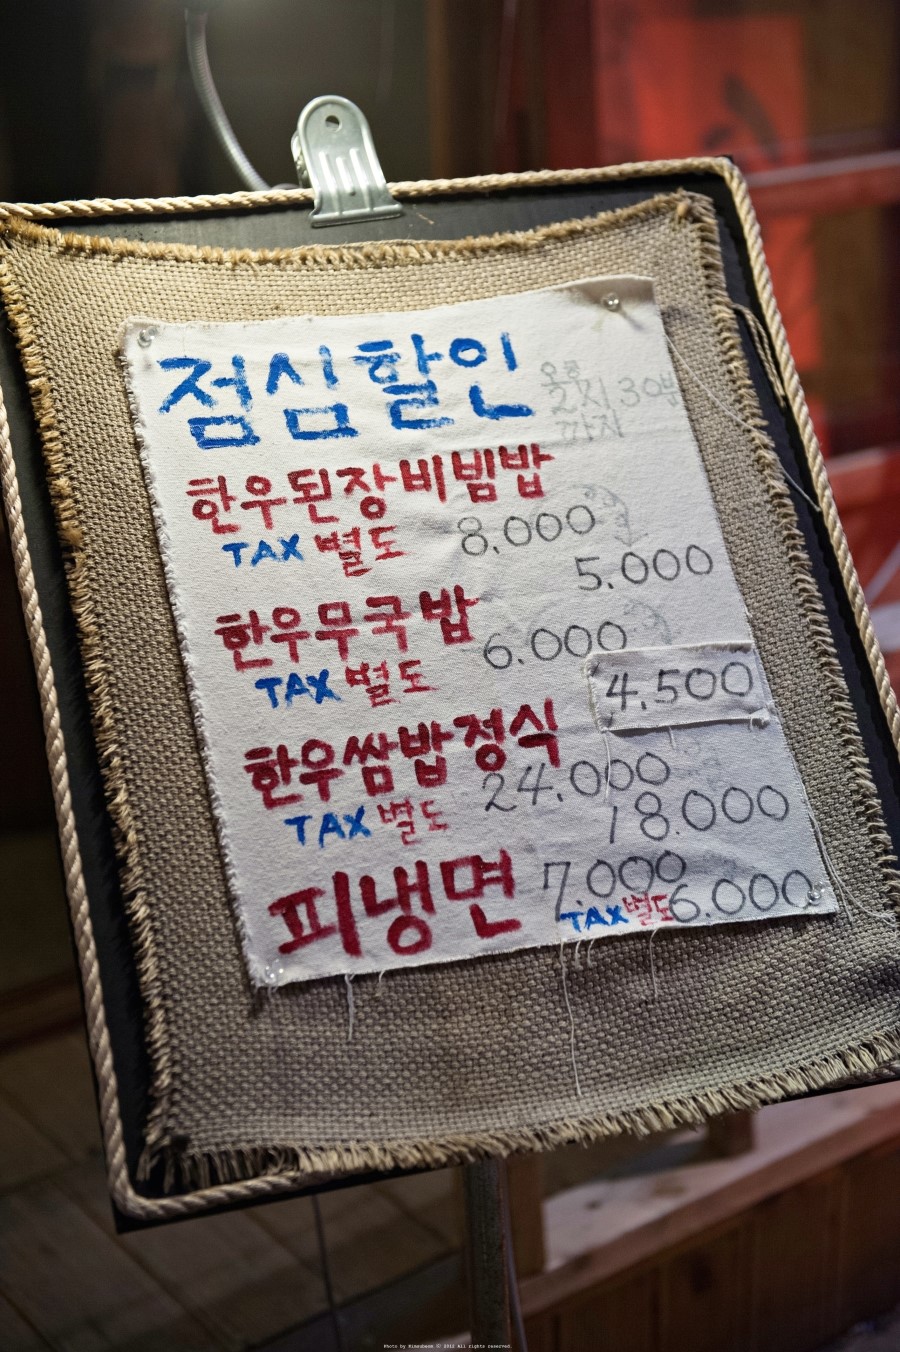 점심할인
오후
2시 30분
까지
한우된장비빔밥
TAX 별도 8.000
5.000
한우무국밥
TAX 별도 6.000
4,500
한우쌈밥정식
TAX 별도 24.000
18.000
피냉면 7.000
TAX별도 6.000
Photo by Rimeubeem © 2012 All rights reserved.